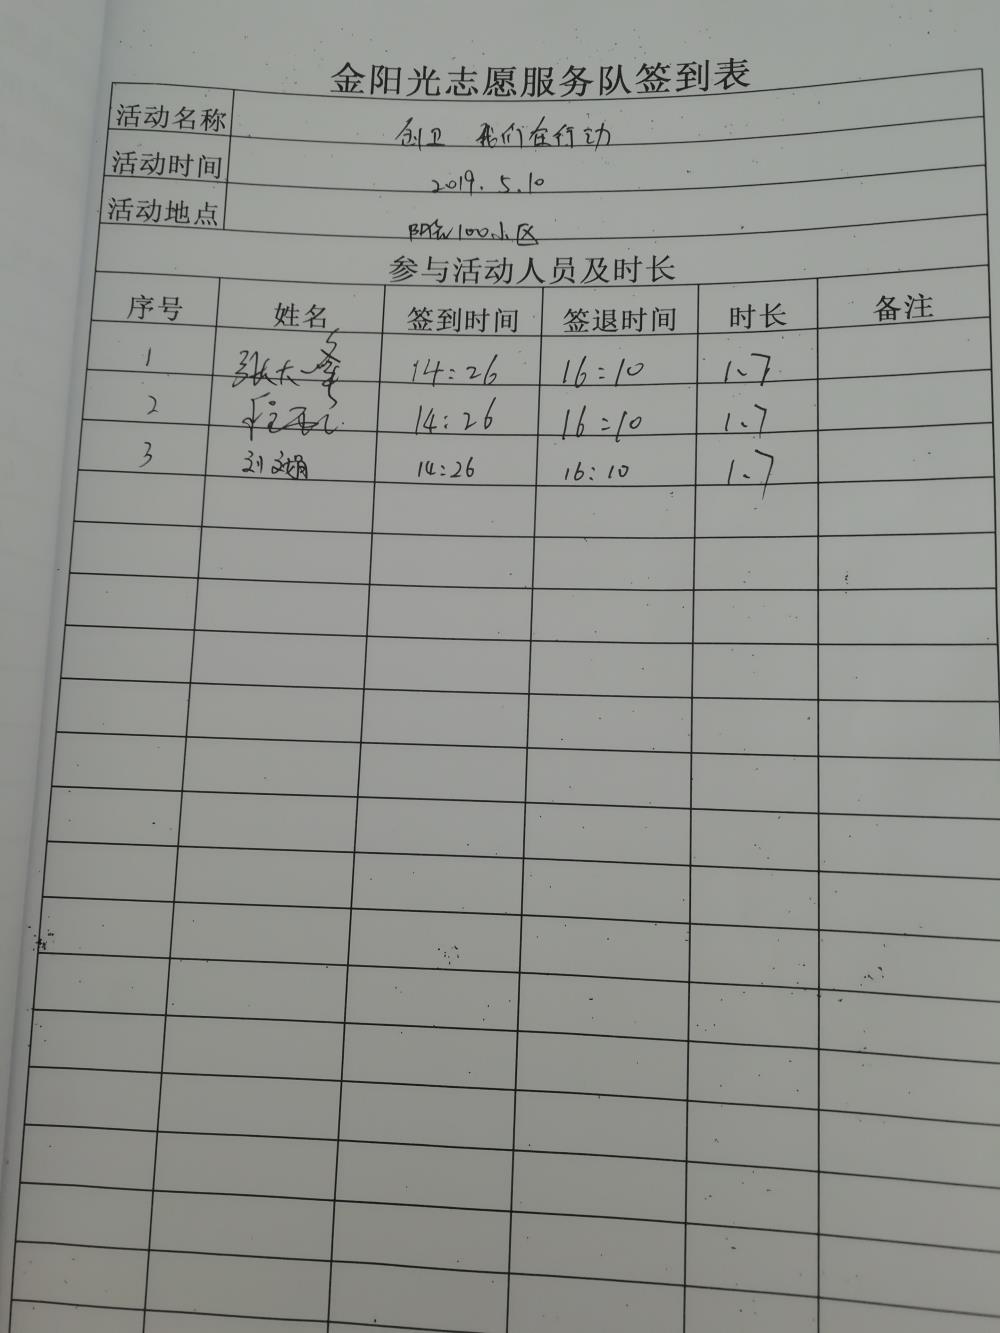 金阳光志愿服务队签到表
活动名称 创卫 我们在行动
活动时间 2019.5.10
活动地点 阳光100小区
参与活动人员及时长
序号 姓名 签到时间 签退时间 时长 备注
1 张大 14:26 16:10 1.7
2 14:26 16:10 1.7
3 刘文娟 14:26 16:10 1.7